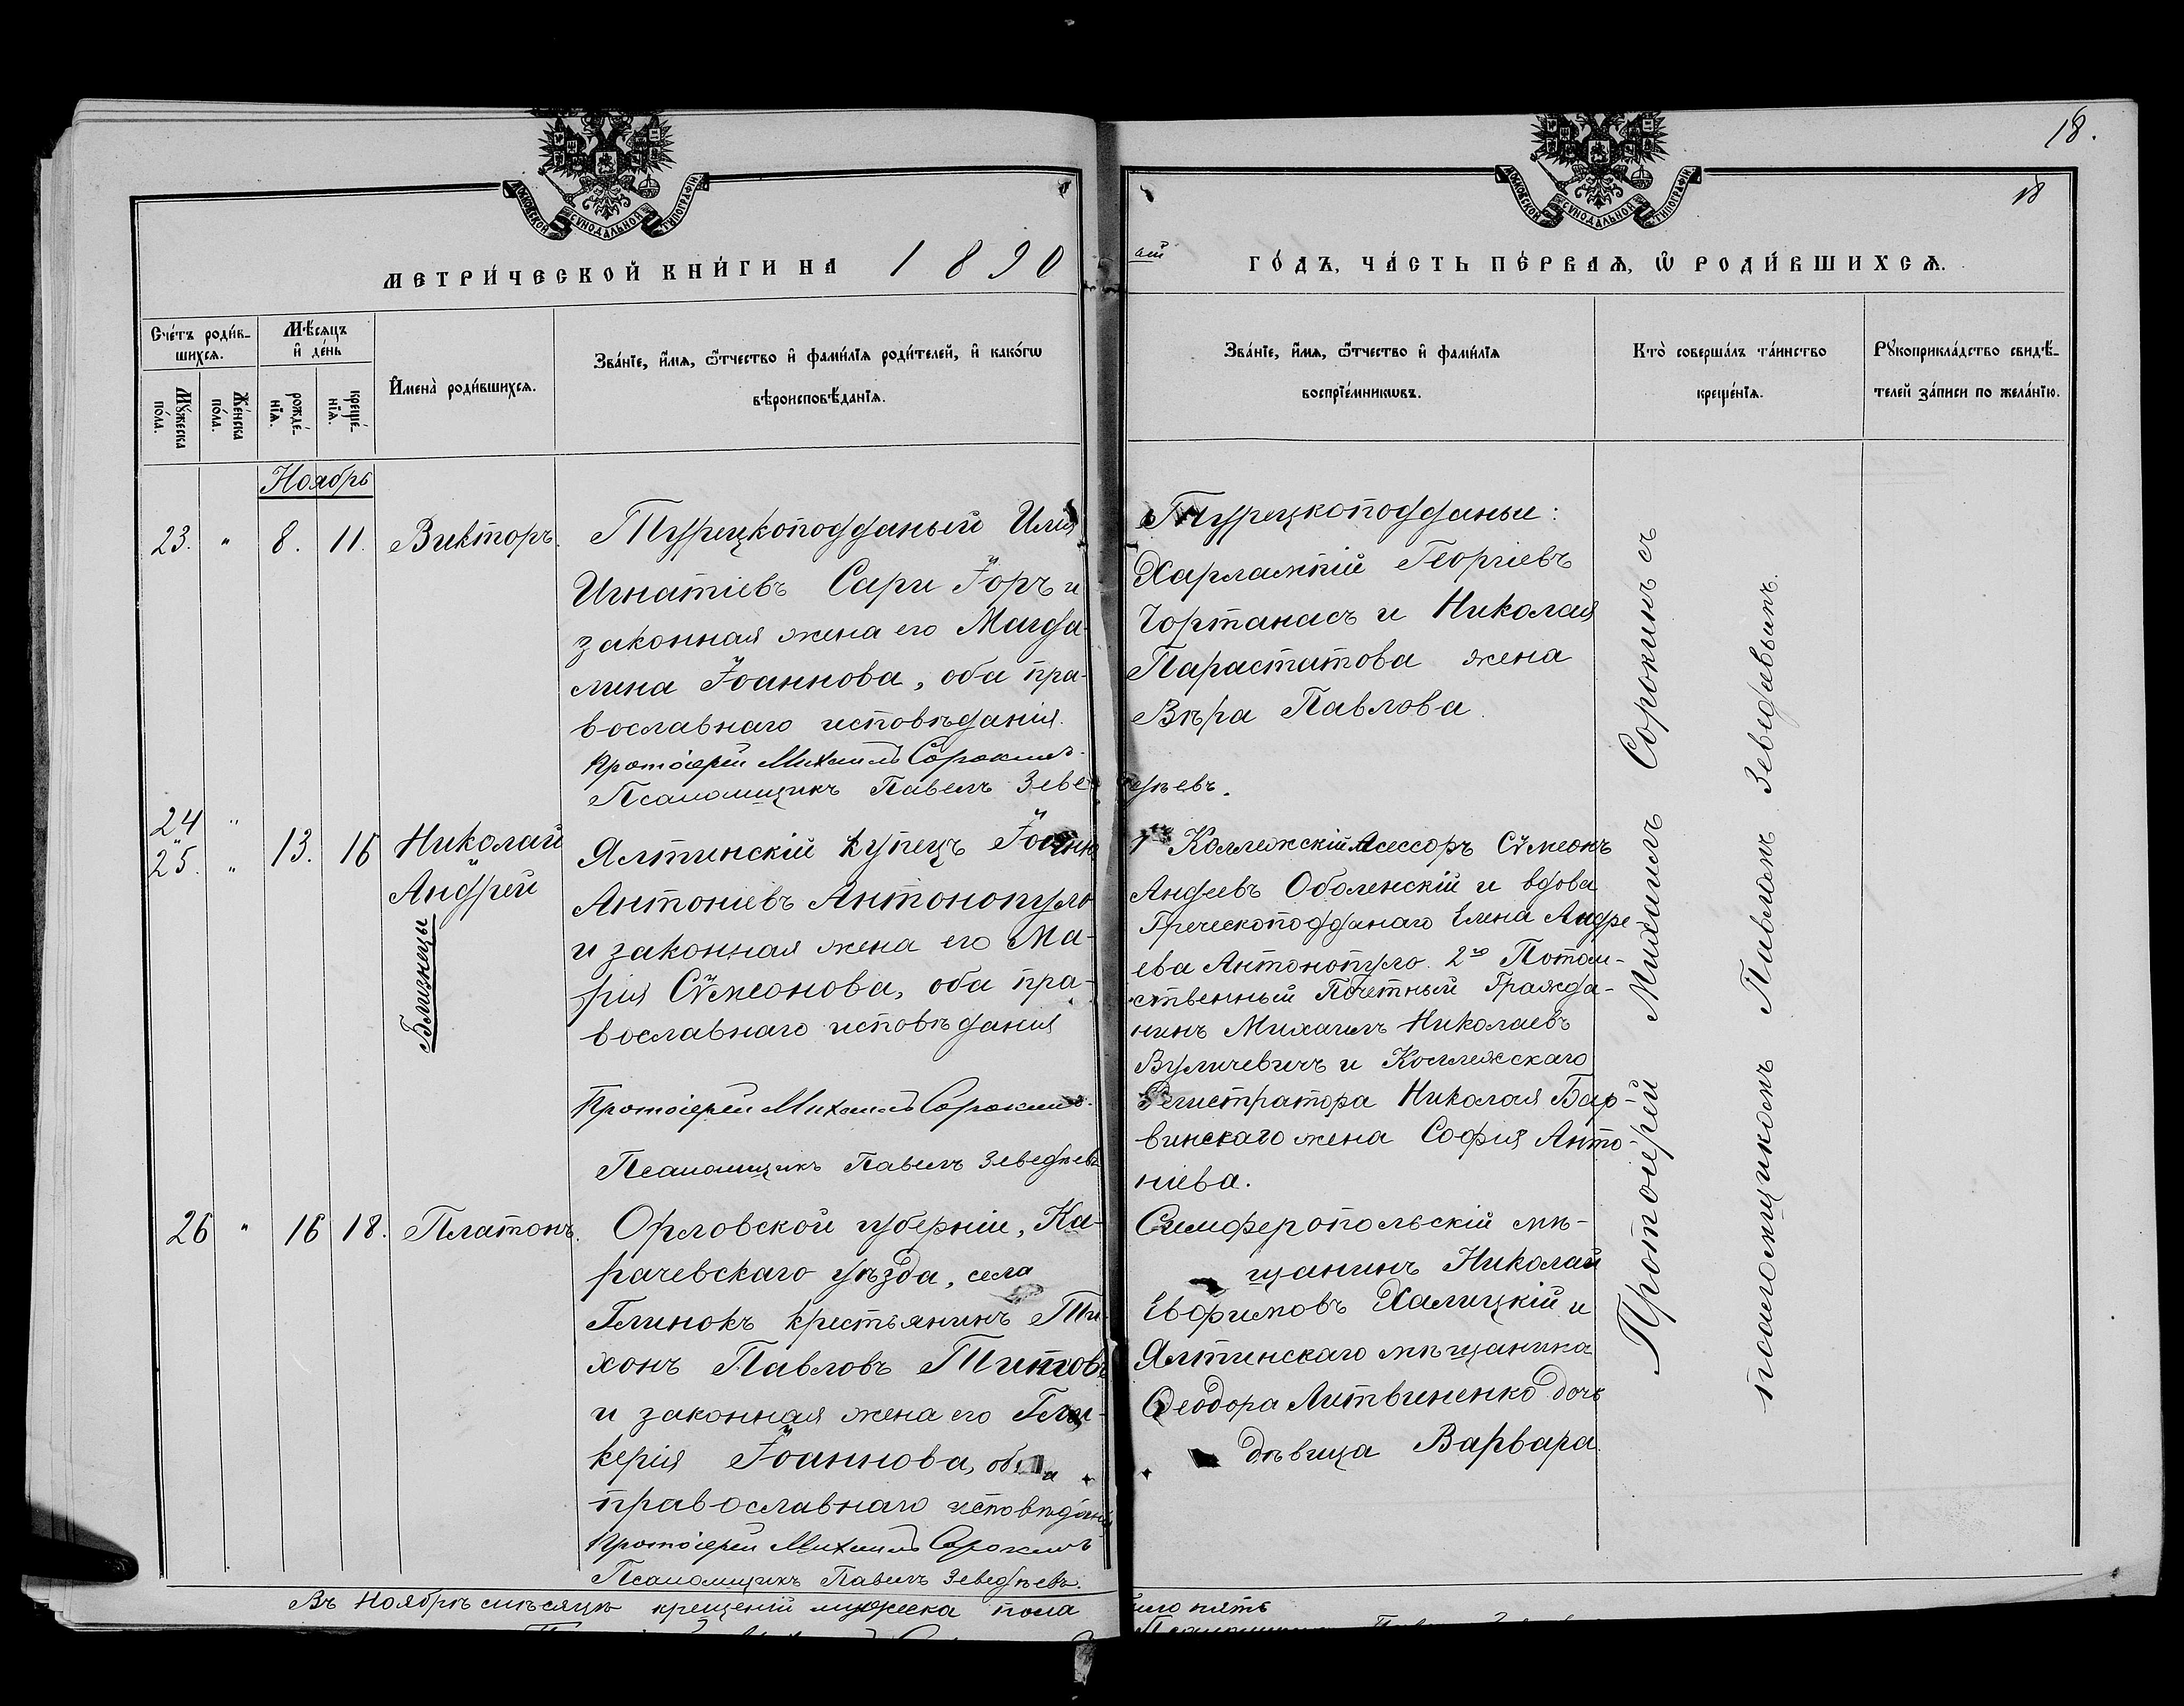 18.
18
МОСКОВСКОЙ СѴНОДАЛЬНОЙ ТИПОГРАФІИ
МОСКОВСКОЙ СѴНОДАЛЬНОЙ ТИПОГРАФІИ
МЕТРИ́ЧЕСКОЙ КНИ́ГИ НА 1890
ый ГО́ДЪ, ЧА́СТЬ ПЕ́РВАѦ, Ѡ҆ РОДИ́ВШИХСѦ.
Сче́тъ роди́в-
шихсѧ.
Мꙋ́жеска
по́ла.
Же́нска
по́ла.
Мѣ́сѧцъ
и҆ де́нь
рожде́-
нїѧ.
креще́-
нїѧ.
И҆мена̀ роди́вшихсѧ.
Зва́нїе, и҆́мѧ, ѻ҆́тчество и҆ фами́лїѧ роди́телей, и҆ како́гѡ
вѣроисповѣ́данїѧ.
Зва́нїе, и҆́мѧ, ѻ҆́тчество и҆ фами́лїѧ
воспрїе́мникѡвъ.
Кто̀ соверша́лъ та́инство
креще́нїѧ.
Рꙋкоприкла́дство свидѣ́-
телей за́писи по жела́нїю.
Ноябрь
23. " 8. 11. Викторъ.
Турецкоподданый Илія
Игнатіевъ Сари Іоръ и
законная жена его Магда-
лина Іоаннова, оба пра-
вославнаго исповѣданія.
Протоіерей Михаилъ Сорокинъ.
Псаломщикъ Павелъ Зеведѣевъ.
Турецкоподданые:
Харлампій Георгіевъ
Чортанасъ и Николая
Парастатова жена
Вѣра Павлова.
24 "
25. " 13. 16 Николай
и
Андрей
Близнецы
Ялтинскій купецъ Іоаннъ
Антоніевъ Антонопуло
и законная жена его Ма-
рія Сѵмеонова, оба пра-
вославнаго исповѣданія
Протоіерей Михаилъ Сорокинъ.
Псаломщикъ Павелъ Зеведѣевъ
1го Коллежскій Асессоръ Сѵмеонъ
Андеевъ Оболенскій и вдова
Греческоподданаго Елена Андре-
ева Антонопуло. 2го Потом-
ственный Почетный Гражда-
нинъ Михаилъ Николаевъ
Вуличевичъ и Коллежскаго
Регистратора Николая Бар-
винскаго жена Софія Анто-
ніева.
26 " 16 18. Платонъ.
Орловской губерніи, Ка-
рачевскаго уѣзда, села
Глинокъ крестьянинъ Ти-
хонъ Павловъ Титовъ
и законная жена его Гли-
керія Іоаннова, оба
православнаго исповѣданія
Протоіерей Михаилъ Сорокинъ
Псаломщикъ Павелъ Зеведѣевъ.
Симферопольскій мѣ-
щанинъ Николай
Евфимовъ Халицкій и
Ялтинскаго мѣщанина
Ѳеодора Литвиненко дочь
дѣвица Варвара.
Протоіерей Михаилъ Сорокинъ съ
псаломщикомъ Павломъ Зеведѣевымъ.
Въ Ноябрѣ мѣсяцѣ крещеній мужеска пола было пять